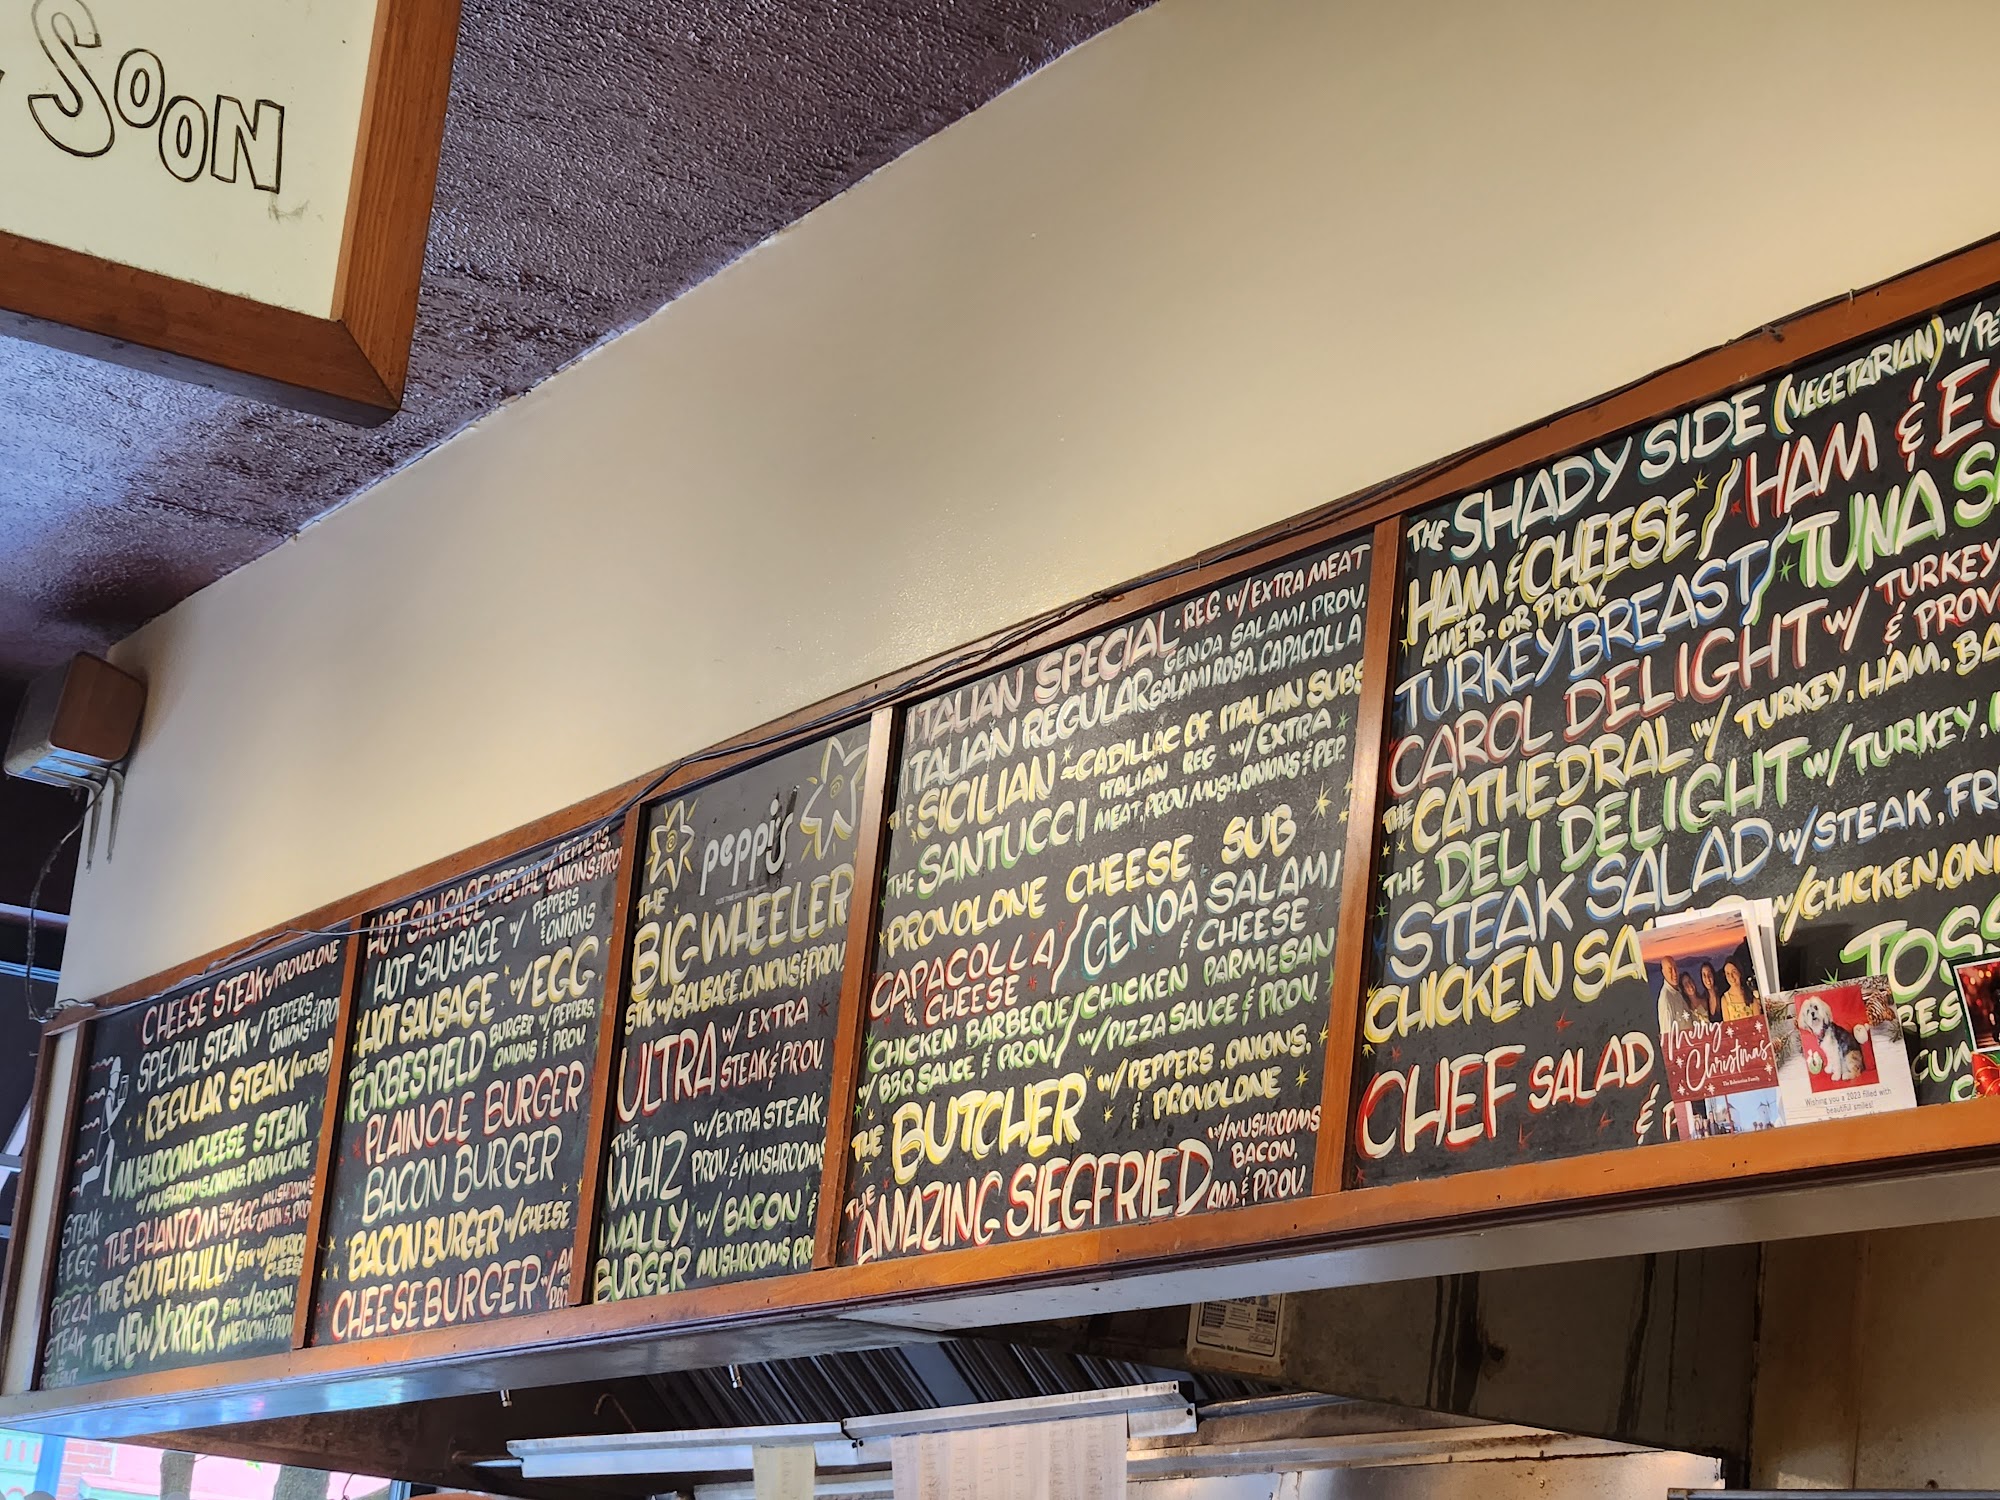 SOON
CHEESE STEAK W/PROVOLONE
SPECIAL STEAK W/ PEPPERS
ONIONS & PRO
REGULAR STEAK (NO CHS)
MUSHROOM CHEESE STEAK
W/MUSHROOMS, ONIONS, PROVOLONE
THE PHANTOM STK W/EGG MUSHROOMS
ONIONS, PROV
THE SOUTH PHILLY STK W/AMERICAN
CHEESE
THE NEW YORKER STK W/BACON,
AMERICAN & PROV
STEAK
& EGG
PIZZA
STEAK
HOT SAUSAGE SPECIAL W/PEPPERS,
ONIONS & PROV
HOT SAUSAGE W/ PEPPERS
& ONIONS
HOT SAUSAGE W/EGG
THE FORBES FIELD BURGER W/PEPPERS,
ONIONS & PROV.
PLAIN OLE BURGER
BACON BURGER
BACON BURGER W/CHEESE
CHEESEBURGER W/AM
OR
PRO
peppi's
THE
BIG WHEELER
STK W/SAUSAGE, ONIONS & PROV.
ULTRA W/ EXTRA
STEAK & PROV.
THE
WHIZ W/EXTRA STEAK,
PROV. & MUSHROOMS
WALLY W/ BACON &
BURGER MUSHROOMS PRO
ITALIAN SPECIAL • REG. W/EXTRA MEAT
ITALIAN REGULAR GENOA SALAMI, PROV.
SALAMI ROSA, CAPACOLLA
THE SICILIAN ~CADILLAC OF ITALIAN SUBS
THE SANTUCCI ITALIAN REG W/ EXTRA
MEAT, PROV, MUSH, ONIONS & PEP.
PROVOLONE CHEESE SUB
CAPACOLLA / GENOA SALAMI
& CHEESE & CHEESE
CHICKEN BARBEQUE / CHICKEN PARMESAN
W/ BBQ SAUCE & PROV. W/PIZZA SAUCE & PROV.
THE BUTCHER W/PEPPERS, ONIONS,
& PROVOLONE
THE AMAZING SIEGFRIED W/MUSHROOMS
BACON,
AM. & PROV.
THE SHADY SIDE (VEGETARIAN) W/PE
HAM & CHEESE / HAM & EG
AMER. OR PROV.
TURKEY BREAST / TUNA S
CAROL DELIGHT W/ TURKEY
& PROV
THE CATHEDRAL W/ TURKEY, HAM, BA
THE DELI DELIGHT W/TURKEY,
STEAK SALAD W/STEAK, FR
CHICKEN SA W/CHICKEN, ON
TOSS
CHEF SALAD
&
Merry
Christmas
Wishing you a 2023 filled with
beautiful smiles!